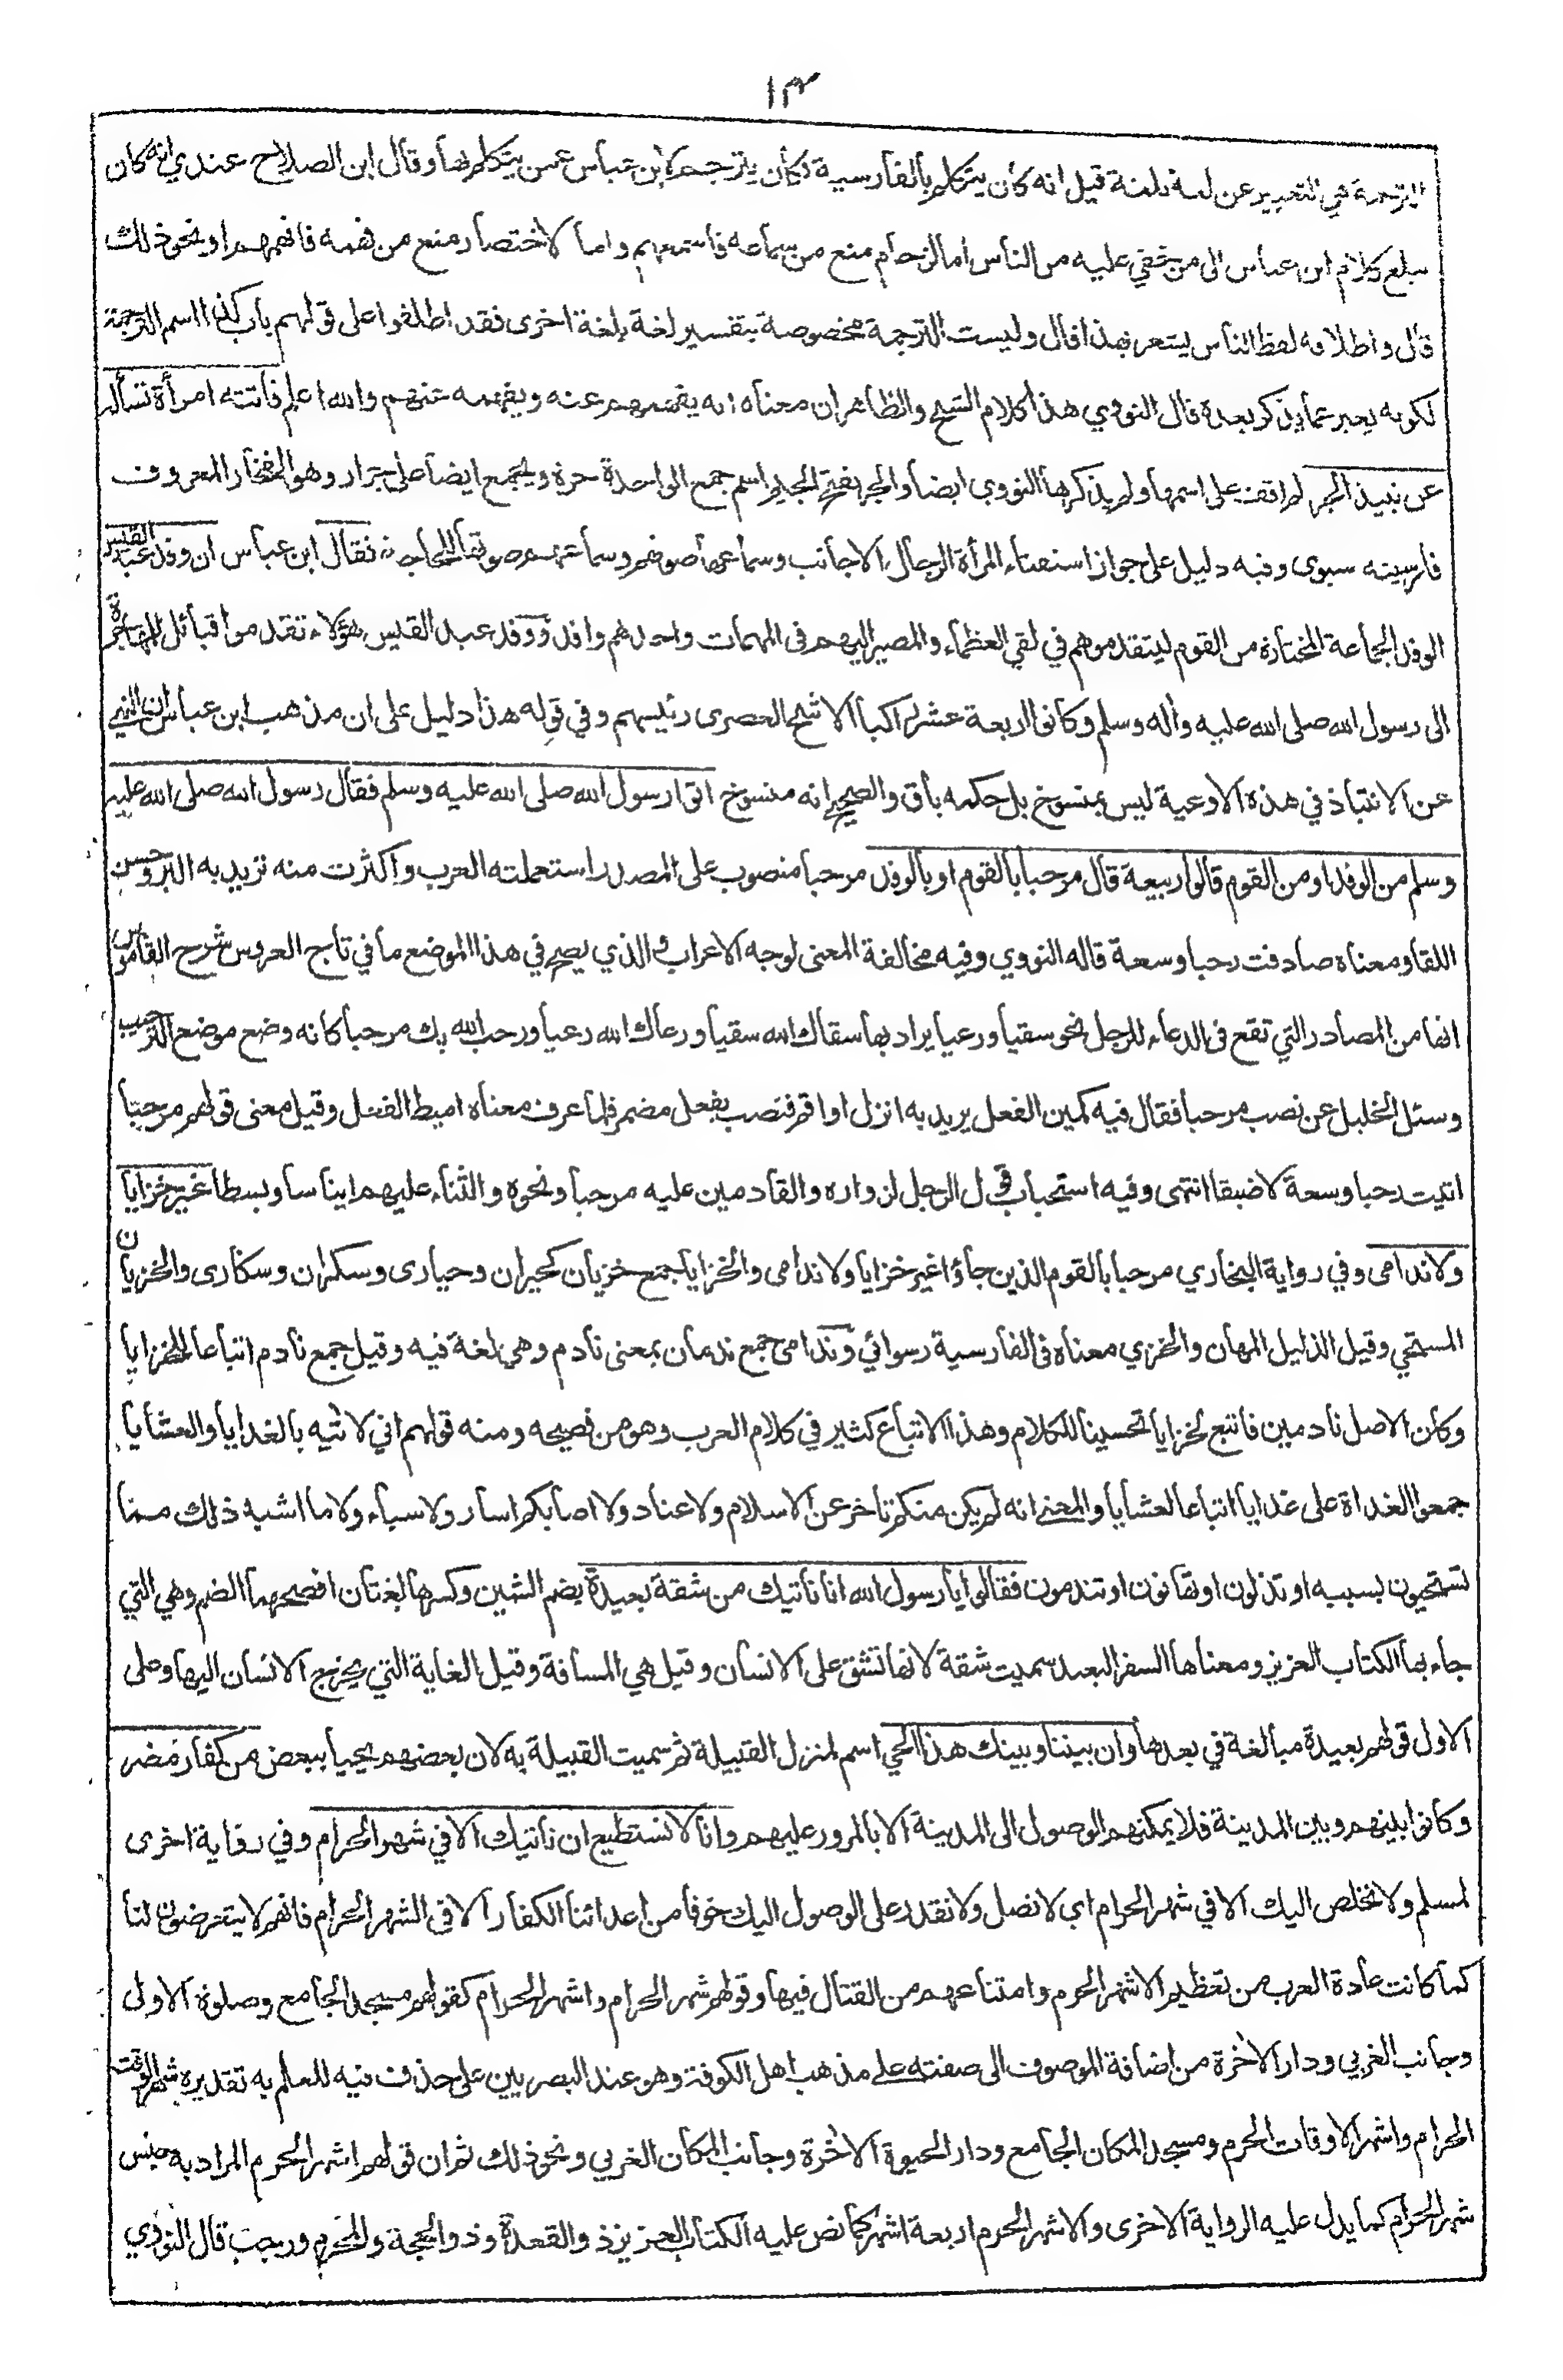 ١٣
الترجمة هي التعبير عن لغة بلغة قيل انه كان يتكلم بالفارسية فكان يترجم لابن عباس عمن يتكلم بها وقال ابن الصلاح عندي انه كان
يبلغ كلام ابن عباس الى من خفي عليه من الناس اما لزحام منع من سماعه فاسمعهم واما لاختصار منع من فهمه فافهمهم او نحو ذلك
قال واطلاقه لفظ الناس يشعر بهذا قال وليست الترجمة مخصوصة بتفسير لغة بلغة اخرى فقد اطلقوا على قولهم باب كذا اسم الترجمة
لكونه يعبر عما يذكر بعده قال النووي هذا كلام الشيخ والظاهر ان معناه انه يفهمهم عنه ويفهمه عنهم والله اعلم فاتته امرأة تسأله
عن نبيذ الجر لم اقف على اسمها ولم يذكرها النووي ايضا والجر بفتح الجيم اسم جمع الواحدة جرة ويجمع ايضا على جرار وهو الفخار المعروف
فارسيته سبوى وفيه دليل على جواز استفتاء المرأة الرجال الاجانب وسماعها صوتهم وسماعهم صوتها للحاجة فقال ابن عباس ان وفد عبد القيس
الوفد الجماعة المختارة من القوم ليتقدموهم في لقي العظماء والمصير اليهم فى المهمات واحدهم وافد ووفد عبد القيس هؤلاء تقدموا قبائل المهاجرة
الى رسول الله صلى الله عليه واله وسلم وكانوا اربعة عشر راكبا الاشج العصرى رئيسهم وفي قوله هذا دليل على ان مذهب ابن عباس ان النهي
عن الانتباذ في هذه الاوعية ليس بمنسوخ بل حكمه باق والصحيح انه منسوخ اتوا رسول الله صلى الله عليه وسلم فقال رسول الله صلى الله عليه
وسلم من الوفد او من القوم قالوا ربيعة قال مرحبا بالقوم او بالوفد مرحبا منصوب على المصدر استعملته العرب واكثرت منه تريد به البر وحسن
اللقا ومعناه صادفت رحبا وسعة قاله النووي وفيه مخالفة المعنى لوجه الاعراب والذي يصح في هذا الموضع ما في تاج العروس شرح القاموس
انها من المصادر التي تقع فى الدعاء للرجل نحو سقيا ورعيا يراد بها سقاك الله سقيا ورعاك الله رعيا ورحب الله بك مرحبا كانه وضع موضع الترحيب
وسئل الخليل عن نصب مرحبا فقال فيه كمين الفعل يريد به انزل او اقم فنصب بفعل مضمر فلما عرف معناه اميط الفعل وقيل معنى قولهم مرحبا
اتيت رحبا وسعة لا ضيقا انتهى وفيه استحباب قول الرجل لزواره والقادمين عليه مرحبا ونحوه والثناء عليهم ايناسا وبسطا غير خزايا
ولا ندامى وفي رواية البخاري مرحبا بالقوم الذين جاؤا غير خزايا ولا ندامى والخزايا جمع خزيان كحيران وحيارى وسكران وسكارى والخزيان
المستحي وقيل الذليل المهان والخزي معناه فى الفارسية رسوائي وندامى جمع ندمان بمعنى نادم وهي لغة فيه وقيل جمع نادم اتباعا للخزايا
وكان الاصل نادمين فاتبع لخزايا تحسينا للكلام وهذا الاتباع كثير في كلام العرب وهو من فصيحه ومنه قولهم اني لاتيه بالغدايا والعشايا
جمعوا الغداة على غدايا اتباعا لعشايا والمعنى انه لم يكن منكم تاخر عن الاسلام ولا عناد ولا اصابكم اسار ولا سباء ولا ما اشبه ذلك مما
تستحيون بسببه او تذلون او تهانون او تندمون فقالوا يا رسول الله انا ناتيك من شقة بعيدة بضم الشين وكسرها لغتان افصحهما الضم وهي التي
جاء بها الكتاب العزيز ومعناها السفر البعيد سميت شقة لانها تشق على الانسان وقيل هي المسافة وقيل الغاية التي يخرج الانسان اليها وعلى
الاول قولهم بعيدة مبالغة في بعدها وان بيننا وبينك هذا الحي اسم لمنزل القبيلة ثم سميت القبيلة به لان بعضهم يحيا ببعض من كفار مضر
وكانوا بينهم وبين المدينة فلا يمكنهم الوصول الى المدينة الا بالمرور عليهم وانا لا نستطيع ان ناتيك الا في شهر الحرام وفي رواية اخرى
لمسلم ولا نخلص اليك الا في شهر الحرام اي لا نصل ولا نقدر على الوصول اليك خوفا من اعدائنا الكفار الا فى الشهر الحرام فانهم لا يتعرضون لنا
كما كانت عادة العرب من تعظيم الاشهر الحرم وامتناعهم من القتال فيها وقولهم شهر الحرام واشهر الحرام كقولهم مسجد الجامع وصلوة الاولى
وجانب الغربي ودار الاخرة من اضافة الموصوف الى صفته على مذهب اهل الكوفة وهو عند البصريين على حذف فيه للعلم به تقديره شهر الوقت
الحرام واشهر الاوقات الحرم ومسجد المكان الجامع ودار الحيوة الاخرة وجانب المكان الغربي ونحو ذلك ثم ان قولهم اشهر الحرم المراد به جنس
شهر الحرام كما يدل عليه الرواية الاخرى والاشهر الحرم اربعة اشهر كما نص عليه الكتاب العزيز ذو القعدة وذو الحجة والمحرم ورجب قال النووي